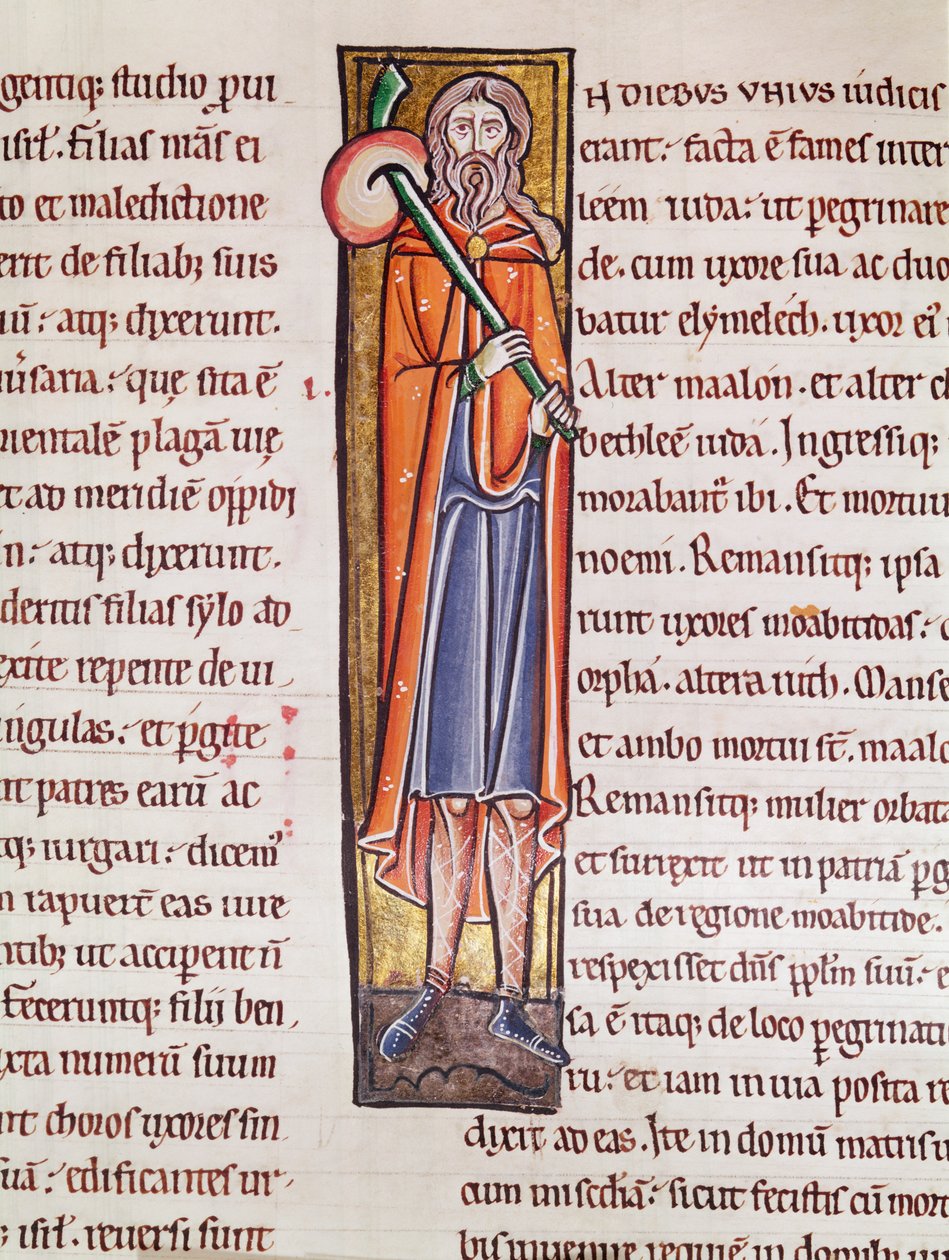 gentiq; studio pui
isrł. Filias nr̄as ei
to et maledictione
erit de filiab; suis
iū: atq; dixerunt.
iūsaria: quę sita ē
rientalē plagā uię
et ad meridiē oppidi
in: atq; dixerunt.
deritis filias sẏlo ad
exite repente de ui
singulas: et pgite
nt patres earū ac
tq; iurgari: dicem᾽
n rapuert̄ eas iure
ntib; ut acciperent n̄
Feceruntq; filij ben
xta numerū suum
nt choros uxores sin
suā: edificantes ur
; isrł. reuersi sunt
N DIEBVS VNIVS iudicis
erant: facta ē fames inter
léém iuda: ut pegrinare
de. cum uxore sua ac duo
batur elẏmeléch. uxor ei᾽
Alter maalón. et alter ch
bethleē iudá. Ingressiq;
morabant᾽ ibi. Et mortuu
noemi. Remansitq; ipsa
runt uxores moabitidas:
orphá. altera ruth. Manse
et ambo mortui st̄. maalo
Remansitq; mulier orbata
et surrexit ut in patriā pg
sua de regione moabitide.
respexisset dn̄s pplm̄ suū:
sa ē itaq; de loco pegrinati
ru: et iam in uia posita re
dixit ad eas. Ite in domū matris
cum miscdiā: sicut fecistis cū mort
bis inuenire requiē in domib;